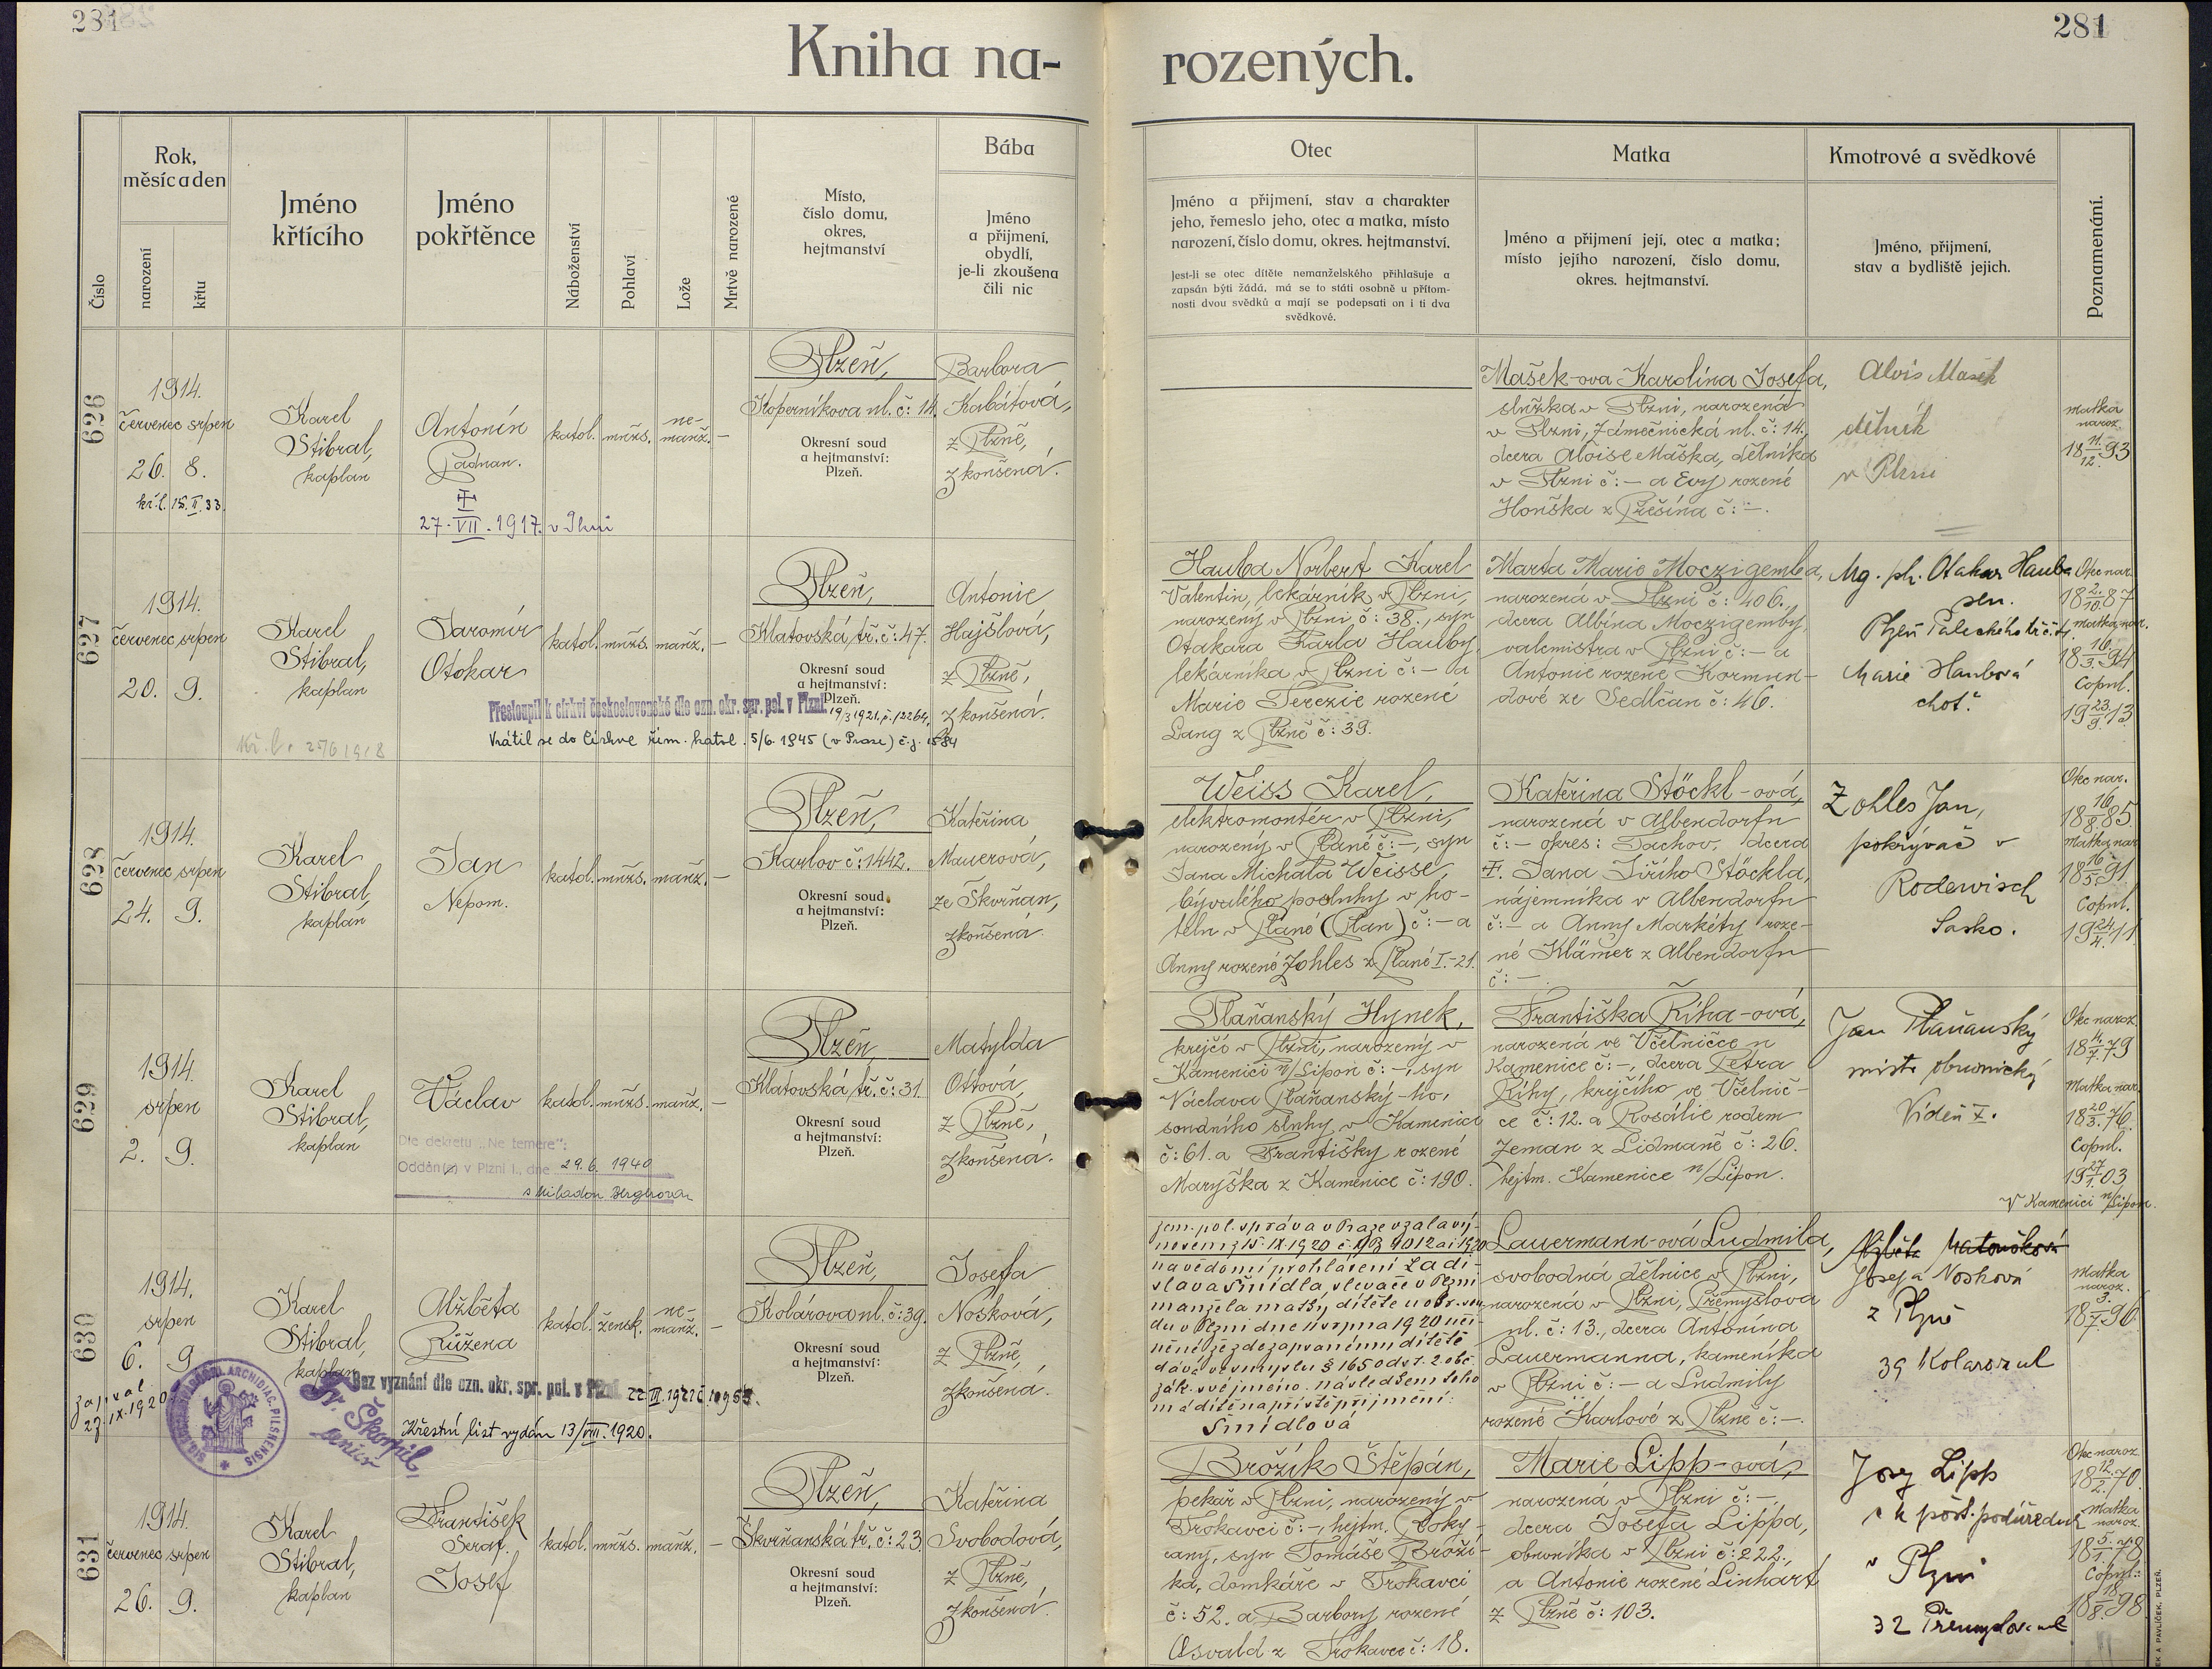 281
281
Kniha na-
rozených.
Číslo
Rok,
měsíc a den
narození
křtu
Jméno
křtícího
Jméno
pokřtěnce
Náboženství
Pohlaví
Lože
Mrtvě narozené
Místo,
číslo domu,
okres,
hejtmanství
Bába
Jméno
a přijmení,
obydlí,
je-li zkoušena
čili nic
Otec
Jméno a přijmení, stav a charakter
jeho, řemeslo jeho, otec a matka, místo
narození, číslo domu, okres. hejtmanství.
Jest-li se otec dítěte nemanželského přihlašuje a
zapsán býti žádá, má se to státi osobně u přítom-
nosti dvou svědků a mají se podepsati on i ti dva
svědkové.
Matka
Jméno a přijmení její, otec a matka;
místo jejího narození, číslo domu,
okres. hejtmanství.
Kmotrové a svědkové
Jméno, přijmení,
stav a bydliště jejich.
Poznamenání.
626
1914.
červenec srpen
26. 8.
kř. l. 15. II. 33.
Karel
Stibral,
kaplan
Antonín
Paduan.
27. VII. 1917. v Plzni
katol.
mužs.
ne-
manž.
–
Plzeň,
Koperníkova ul. č: 14.
Okresní soud
a hejtmanství:
Plzeň.
Barbora
Kabátová,
z Plzně,
zkoušená.
Mašek-ova Karolína Josefa,
služka v Plzni, narozená
v Plzni, Zámečnická ul. č: 14.,
dcera Aloise Maška, dělníka
v Plzni č: – a Evy rozené
Honška z Přešína č: –.
Alois Mašek
dělník
v Plzni
matka
naroz.
18 11./12. 93
627
1914.
červenec srpen
20. 9.
Kř. l. 25/6 1918
Karel
Stibral,
kaplan
Jaromír
Otokar
katol.
mužs.
manž.
–
Plzeň,
Klatovská tř. č: 47.
Okresní soud
a hejtmanství:
Plzeň.
Přestoupil k církvi československé dle ozn. okr. spr. pol. v Plzni 19/3 1921, č. 12264.
Vrátil se do Církve řím. katol. 5/6. 1945 (v Praze) č.j. 1584
Antonie
Hajšlová,
z Plzně,
zkoušená.
Hauba Norbert Karel
Valentin, lekárník v Plzni,
narozený v Plzni, č: 38., syn
Otakara Karla Hauby,
lekárníka v Plzni č: – a
Marie Terezie rozené
Lang z Plzně č: 39.
Marta Marie Moczigemba,
narozená v Plzni č: 406.,
dcera Albína Moczigemby,
valcmistra v Plzni č: – a
Antonie rozené Kormun-
dové ze Sedlčan č: 46.
Mg. ph. Otakar Hauba
sen.
Plzeň Paleckého tř. č.
Marie Haubová
choť.
Otec nar.
18 2./10. 87
matka nar.
18 16./3. 94
Copul.
19 23./9. 13
628
1914.
červenec srpen
24. 9.
Karel
Stibral,
kaplan
Jan
Nepom.
katol.
mužs.
manž.
–
Plzeň,
Karlov č: 1442.
Okresní soud
a hejtmanství:
Plzeň.
Kateřina
Mauerová,
ze Škvrňan,
zkoušená.
Weiss Karel,
elektromontér v Plzni,
narozený v Plané č: –, syn
Jana Michala Weisse,
bývalého posluhy v ho-
telu v Plané (Plan) č: – a
Anny rozené Zohles z Plané I.-21.
Kateřina Stöckl-ová,
narozená v Albendorfu
č: – okres: Tachov, dcera
Jana Jiřího Stöckla,
nájemníka v Albendorfu
č: – a Anny Markéty roze-
né Klämer z Albendorfu
č: –
Zohles Jan,
pokrývač v
Rodewisch
Sasko.
Otec nar.
18 16./8. 85.
Matka nar.
18 16./5. 91.
Copul.
19 24./4. 11
629
1914.
srpen
2. 9.
Karel
Stibral,
kaplan
Václav
Dle dekretu „Ne temere":
Oddán(a) v Plzni I., dne 29. 6. 1940
s Miladou Bergrovou
katol.
mužs.
manž.
–
Plzeň,
Klatovská tř. č: 31.
Okresní soud
a hejtmanství:
Plzeň.
Matylda
Ottová,
z Plzně,
zkoušená.
Plaňanský Hynek,
krejčí v Plzni, narozený v
Kamenici n/Lipou č: –, syn
Václava Plaňanský-ho,
soudního sluhy v Kamenici
č: 61. a Františky rozené
Maryška z Kamenice č: 190.
Františka Říha-ová,
narozená ve Včelničce u
Kamenice č: –, dcera Petra
Říhy, krejčího ve Včelnič-
ce č: 12. a Rosálie rodem
Zeman z Lidmaně č: 26.
hejtm. Kamenice n/Lipou.
Jan Plaňanský
mistr obuvnický
Vídeň X.
Otec naroz.
18 14./7. 79
Matka nar.
18 20./3. 76.
Copul.
19 27./1. 03
V Kamenici n/Lipou.
630
1914.
srpen
6. 9.
zapsal
27. IX. 1920
ARCHIDIAC. PILSNENSIS
Fr. Škorpil,
Karel
Stibral,
kaplan
Alžběta
Růžena
Bez vyznání dle ozn. okr. spr. pol. v Plzni
Křestní list vydán 13/VIII. 1920.
katol.
žensk.
ne-
manž.
–
Plzeň,
Kolárova ul. č: 39.
Okresní soud
a hejtmanství:
Plzeň.
Josefa
Nosková,
z Plzně,
zkoušená.
Zem. pol. správa v Praze vzala vý-
nosem z 15. IX. 1920 č.
na vědomí prohlášení Ladi-
slava Šmídla slevače v Plzni
manžela matky dítěte u
du v Plzni dne 11 srpna 1920 uči-
něné že zde zapsanému dítěti
dává ve smyslu § 165 odst. 2. obč.
zák. své jméno. následkem toho
má dítě napříště příjmení:
Šmídlová
Lauermann-ová Ludmila,
svobodná dělnice v Plzni,
narozená v Plzni, Přemyslova
ul. č: 13., dcera Antonína
Lauermanna, kameníka
v Plzni č: – a Ludmily
rozené Karlové z Plzně č: –.
Josefa Nosková
z Plzně
39 Kolarova ul
Matka
naroz.
18 3./7. 96.
631
1914.
červenec srpen
26. 9.
Karel
Stibral,
kaplan
František
Seraf.
Josef
katol.
mužs.
manž.
–
Plzeň,
Škvrňanská tř. č: 23.
Okresní soud
a hejtmanství:
Plzeň.
Kateřina
Svobodová,
z Plzně,
zkoušená.
Brožík Štěpán,
pekař v Plzni, narozený v
Trokavci č: –, hejtm. Roky-
cany, syn Tomáše Broží-
ka, domkáře v Trokavci
č: 52. a Barbory rozené
Osvald z Trokavce č: 18.
Marie Lipp-ová,
narozená v Plzni č: –
dcera Josefa Lippa,
obuvníka v Plzni č: 222.,
a Antonie rozené Linhart
z Plzně č: 103.
Josef Lipp
c k pošt. podúředník
v Plzni
32 Přemyslova ul
Otec naroz.
18 12./2. 70.
Matka
naroz.
18 5./1. 78
Copul.:
18 18./8. 98.
EK A PAVLÍČEK, PLZEŇ.